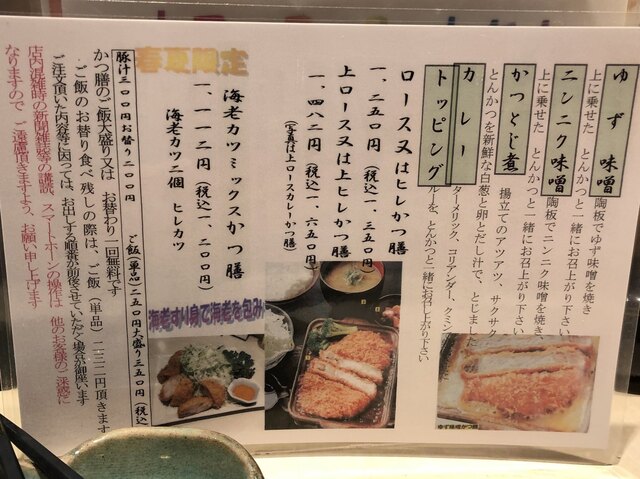 ゆず味噌
上に乗せた とんかつと一緒にお召上がり下さい
陶板でゆず味噌を焼き
ニンニク味噌
上に乗せた とんかつと一緒にお召上がり下さい
陶板でニンニク味噌を焼き、
かつとじ煮
揚立てのアツアツ、サクサク
とんかつを新鮮な白葱と卵とだし汁で、とじました
カレー
ターメリック、コリアンダー、クミン
トッピング
ルーを、とんかつと一緒にお召し上がり下さい
ロース又はヒレかつ膳
一、二五〇円（税込一、三五〇円）
上ロース又は上ヒレかつ膳
一、四八二円（税込一、六五〇円）
（写真は上ロースカレーかつ膳）
春夏限定
海老カツミックスかつ膳
一、一一二円（税込一、二〇〇円）
海老カツ二個 ヒレカツ
海老すり身で海老を包み
ゆず味噌かつ膳
豚汁三〇〇円お替り二〇〇円 ご飯（単品）二五〇円大盛り三五〇円（税込
かつ膳のご飯大盛り又は お替わり一回無料です
ご飯のお替り食べ残しの際は、ご飯（単品）二三二円頂きます
ご注文頂いた内容等に因っては、お出しする順番が前後させていただく場合が御座います
店内混雑時の新聞雑誌等の購読、スマートホーンの操作は、他のお客様のご迷惑に
なりますので ご遠慮頂きますよう、お願い申し上げます